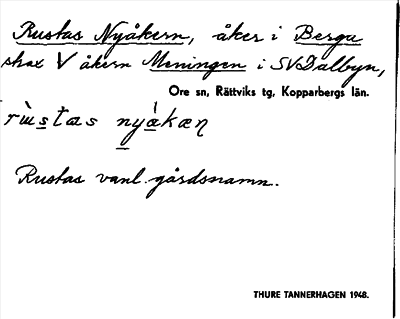 Rustas Nyåkern, åker i Berga
shax V åkern Meningen i SVDalbyn,
Ore sn, Rättviks tg, Kopparbergs län.
rùstas nyàkæn
Rustas vanl. gårdsnamn.
THURE TANNERHAGEN 1948.